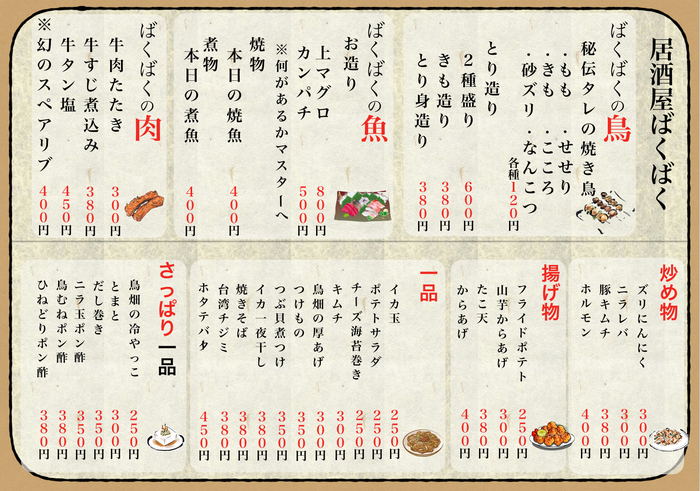 居酒屋ばくばく
ばくばくの鳥
秘伝タレの焼き鳥
・もも ・せせり
・きも ・こころ
・砂ズリ ・なんこつ
各種120円
とり造り
2種盛り 600円
きも造り 380円
とり身造り 380円
ばくばくの魚
お造り
上マグロ 800円
カンパチ 500円
※何があるかマスターへ
焼物
本日の焼魚 400円
煮物
本日の煮魚 400円
ばくばくの肉
牛肉たたき 300円
牛すじ煮込み 380円
牛タン塩 450円
※幻のスペアリブ 400円
炒め物
ズリにんにく 300円
ニラレバ 300円
豚キムチ 380円
ホルモン 400円
揚げ物
フライドポテト 250円
山芋からあげ 300円
たこ天 380円
からあげ 400円
一品
イカ玉 250円
ポテトサラダ 250円
チーズ海苔巻き 250円
キムチ 300円
鳥畑の厚あげ 300円
つけもの 350円
つぶ貝煮つけ 350円
イカ一夜干し 380円
焼きそば 380円
台湾チジミ 380円
ホタテバタ 450円
さっぱり一品
鳥畑の冷やっこ 250円
とまと 300円
だし巻き 350円
ニラ玉ポン酢 350円
鳥むねポン酢 380円
ひねどりポン酢 380円